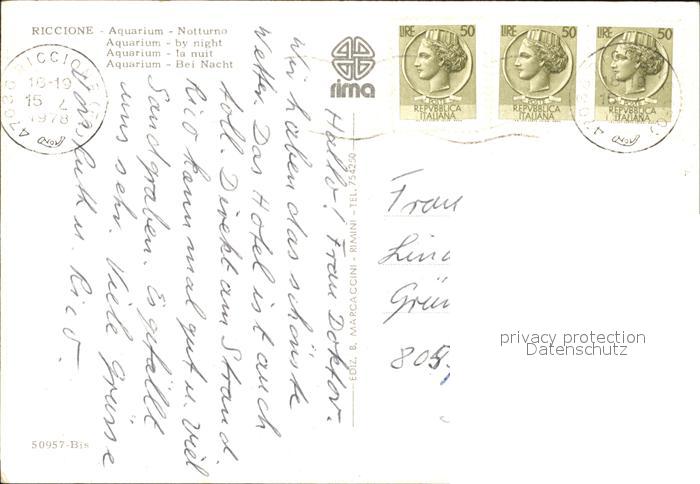 RICCIONE - Aquarium - Notturno
Aquarium - by night
Aquarium - la nuit
Aquarium - Bei Nacht
rima
LIRE 50
REPVBBLICA
ITALIANA
LIRE 50
REPVBBLICA
ITALIANA
LIRE 50
REPVBBLICA
ITALIANA
47036 RICCIONE
16-19
15
1978
Hallo! Frau Doktor.
Wir haben das schönste
Wetter. Das Hotel ist auch
toll. Direkt am Strand.
Rico kann mal gut u. viel
Sandgraben. Es gefällt
uns sehr. Viele Grüsse
Ruth u. Rico.
EDIZ. B. MARCACCINI - RIMINI - TEL. 754250
Frau
Lin
Grün
805
privacy protection
Datenschutz
50957-Bis